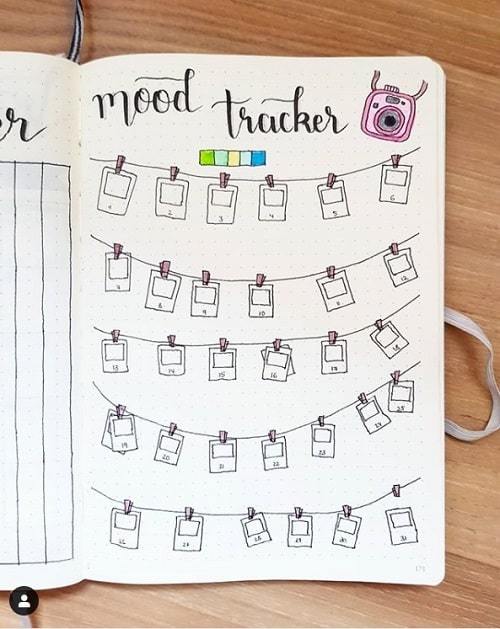 mood
er
tracker
1 2 3 4 5 6
7 8 9 10 11 12
13 14 15 16 17 18
19 20 21 22 23 24 25
26 27 28 29 30 31